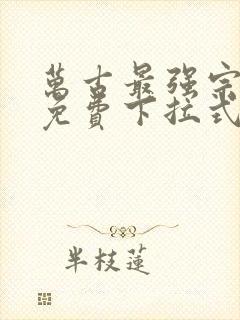 萬古最强宗
免費下拉式
半枝蓮